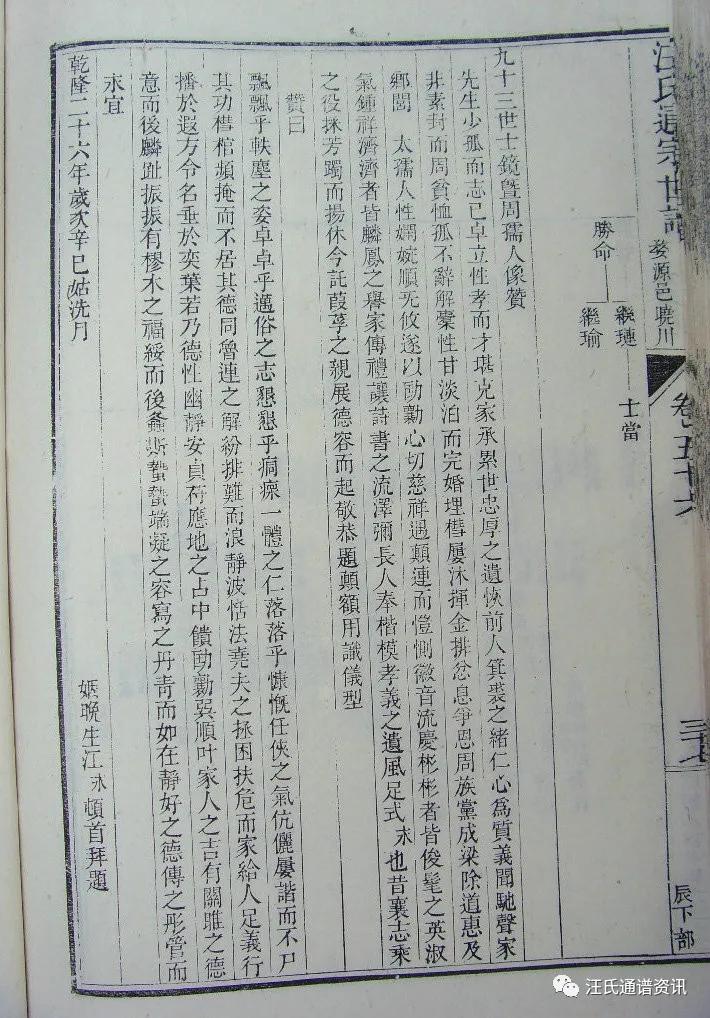 汪氏通宗世譜 婺源邑曉川 卷五十六 三十七 辰下部
勝命
繼璉 士當
繼瑜
九十三世士鏡暨周孺人像贊
先生少孤而志已卓立性孝而才堪克家承累世忠厚之遺恢前人箕裘之緒仁心爲質義聞馳聲家
非素封而周貧恤孤不辭解橐性甘淡泊而完婚埋槥屢沐揮金排忿息爭恩周族黨成梁除道惠及
鄉閭 太孺人性嫻婉順旡攸遂以助勷心切慈祥遇顛連而愷惻徽音流慶彬彬者皆俊髦之英淑
氣鍾祥濟濟者皆麟鳳之譽家傳禮讓詩書之流澤彌長人奉楷模孝義之遺風足式永也昔襄志乘
之役採芳躅而揚休今託葭莩之親展德容而起敬恭題顛額用識儀型
贊曰
飄飄乎軼塵之姿卓卓乎邁俗之志懇懇乎痌瘝一體之仁落落乎慷慨任俠之氣伉儷屢諧而不尸
其功槥棺頻掩而不居其德同魯連之解紛排難而浪靜波恬法堯夫之拯困扶危而家給人足義行
播於遐方令名垂於奕葉若乃德性幽靜安貞符應地之占中饋助勷巽順叶家人之吉有關雎之德
意而後麟趾振振有樛木之福綏而後螽斯蟄蟄端凝之容寫之丹青而如在靜好之德傳之彤管而
永宜
乾隆二十六年歲次辛巳姑洗月
姻晚生江永頓首拜題
汪氏通谱资讯